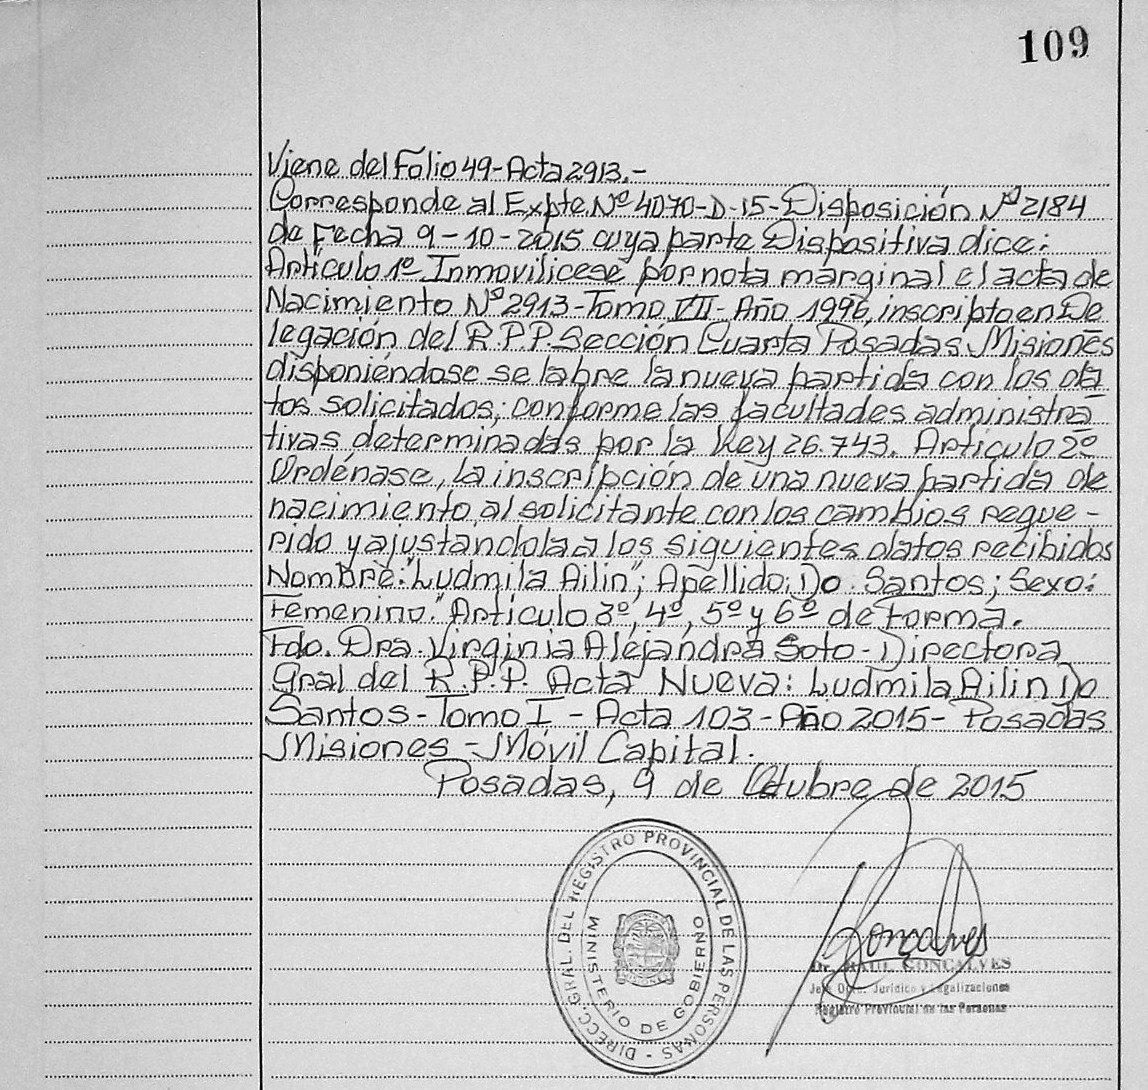 109
Viene del Folio 49-Acta 2913.-
Corresponde al Expte Nº 4070-D-15-Disposición Nº 2184
de Fecha 9-10-2015 cuya parte Dispositiva dice:
Artículo 1º Inmovilicese por nota marginal el acta de
Nacimiento Nº 2913-Tomo VII-Año 1996, inscripto en De
legación del R.P.P. Sección Cuarta Posadas Misiones
disponiéndose se labre la nueva partida con los da
tos solicitados; conforme las facultades administra
tivas determinadas por la Ley 26.743. Artículo 2º
Ordénase, la inscripción de una nueva partida de
nacimiento al solicitante con los cambios reque-
rido y ajustandola a los siguientes datos recibidos
Nombre: "Ludmila Ailin"; Apellido: Do Santos; Sexo:
Femenino." Artículo 3º, 4º, 5º y 6º de forma.
Fdo. Dra. Virginia Alejandra Soto-Directora
Gral del R.P.P. Acta Nueva: Ludmila Ailin Do
Santos-Tomo I-Acta 103-Año 2015-Posadas
Misiones-Móvil Capital.
Posadas, 9 de Octubre de 2015
DIRECC. GRAL. DEL REGISTRO PROVINCIAL DE LAS PERSONAS -
MINISTERIO DE GOBIERNO
Goncalves
Dr. RAUL GONCALVES
Jefe Dpto. Jurídico y Legalizaciones
Registro Provincial de las Personas